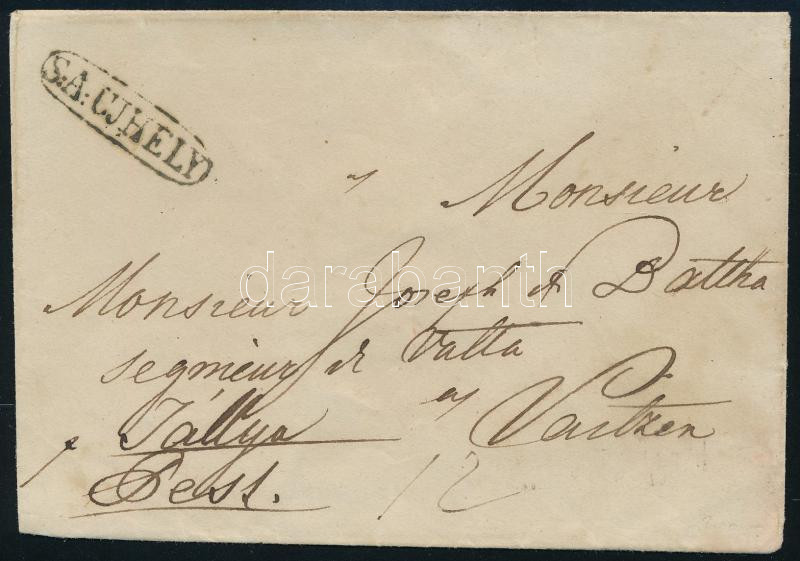 S:A:UJHELY
a Monsieur
Monsieur Joseph d Battha
segnieur de Vatta
a Vaitzen
p Tállya
Pest.
12
darabanth